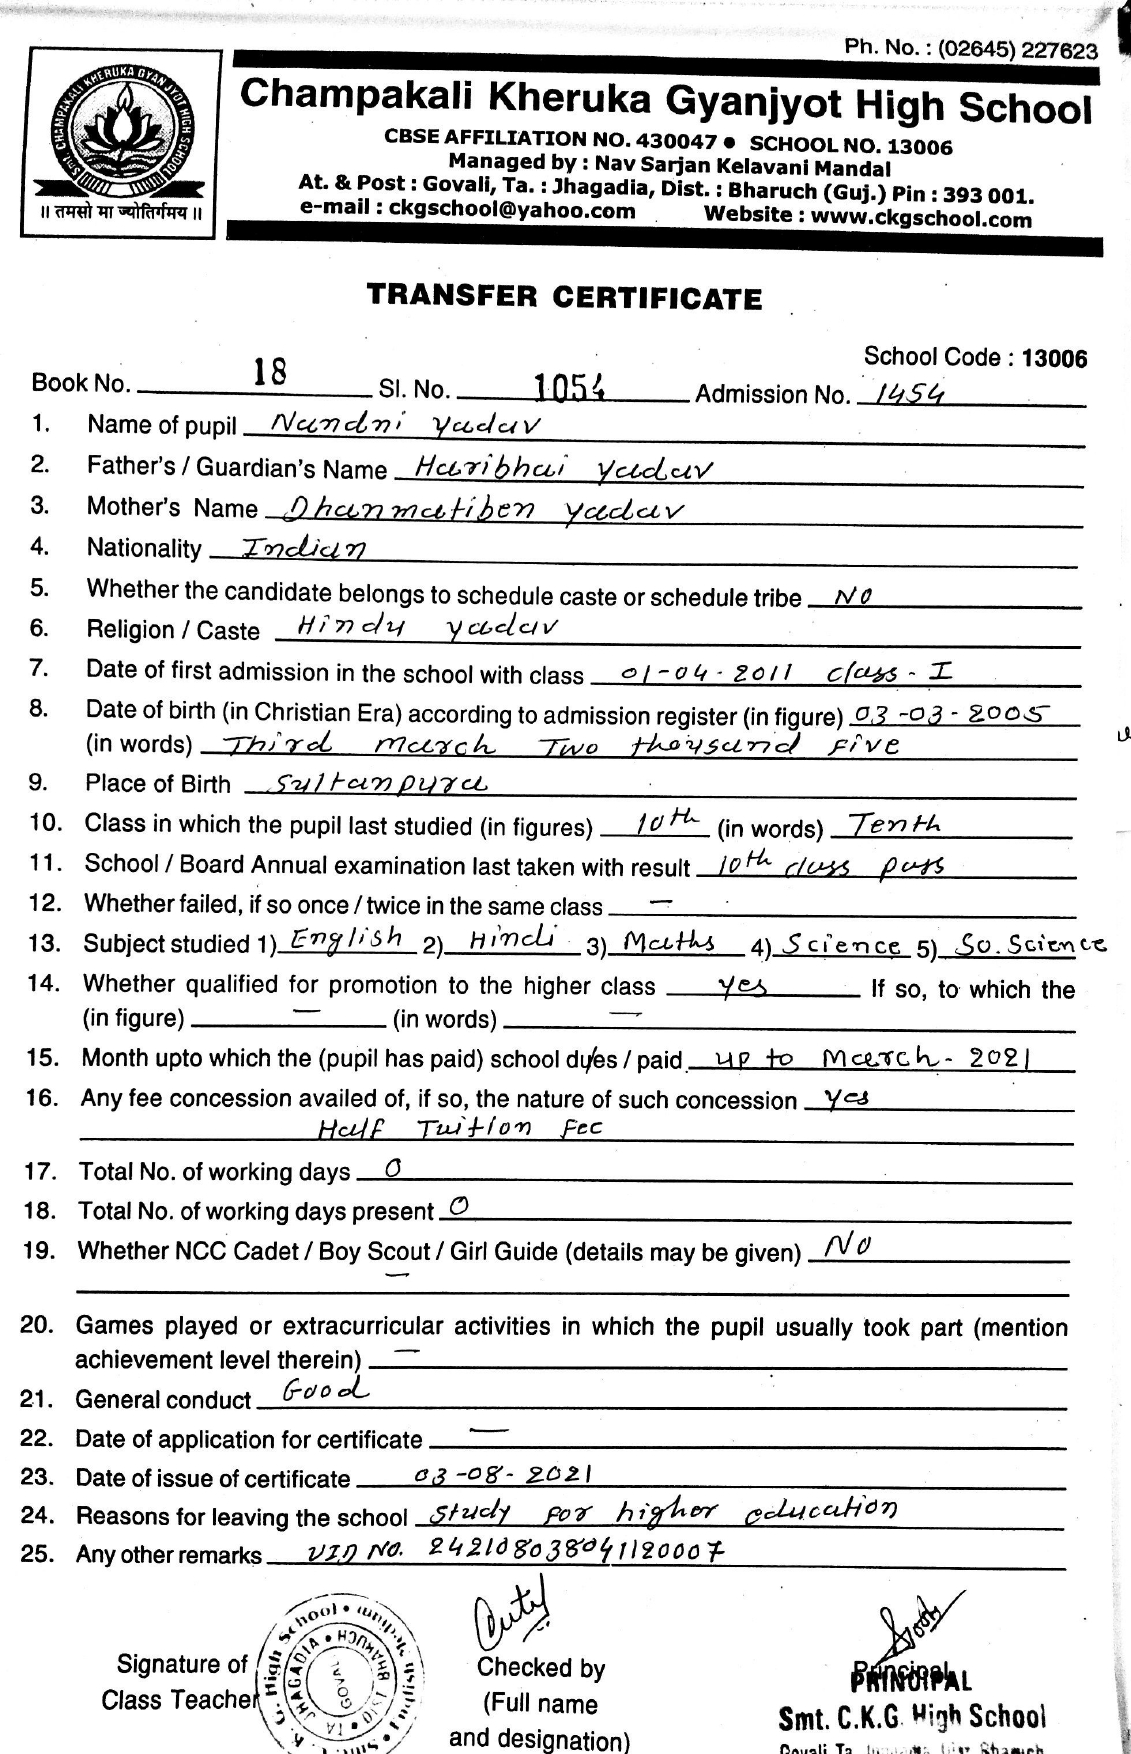 Ph. No. : (02645) 227623
SMT. CHAMPAKALI KHERUKA GYANJYOT HIGH SCHOOL
॥ तमसो मा ज्योतिर्गमय ॥
Champakali Kheruka Gyanjyot High School
CBSE AFFILIATION NO. 430047 ● SCHOOL NO. 13006
Managed by : Nav Sarjan Kelavani Mandal
At. & Post : Govali, Ta. : Jhagadia, Dist. : Bharuch (Guj.) Pin : 393 001.
e-mail : ckgschool@yahoo.com Website : www.ckgschool.com
TRANSFER CERTIFICATE
School Code : 13006
Book No. 18 Sl. No. 1054 Admission No. 1454
1. Name of pupil Nandni yadav
2. Father's / Guardian's Name Haribhai yadav
3. Mother's Name Dhanmatiben yadav
4. Nationality Indian
5. Whether the candidate belongs to schedule caste or schedule tribe NO
6. Religion / Caste Hindu yadav
7. Date of first admission in the school with class 01-04-2011 class-I
8. Date of birth (in Christian Era) according to admission register (in figure) 03-03-2005
(in words) Third march Two thousand Five
9. Place of Birth Sultanpura
10. Class in which the pupil last studied (in figures) 10th (in words) Tenth
11. School / Board Annual examination last taken with result 10th class pass
12. Whether failed, if so once / twice in the same class —
13. Subject studied 1) English 2) Hindi 3) Maths 4) Science 5) So. Science
14. Whether qualified for promotion to the higher class yes If so, to which the
(in figure) — (in words) —
15. Month upto which the (pupil has paid) school dues / paid up to March-2021
16. Any fee concession availed of, if so, the nature of such concession yes
Half Tuition Fee
17. Total No. of working days 0
18. Total No. of working days present 0
19. Whether NCC Cadet / Boy Scout / Girl Guide (details may be given) NO
—
20. Games played or extracurricular activities in which the pupil usually took part (mention
achievement level therein) —
21. General conduct Good
22. Date of application for certificate —
23. Date of issue of certificate 03-08-2021
24. Reasons for leaving the school study for higher education
25. Any other remarks UID NO. 242108038041120007
Signature of
Class Teacher
Checked by
(Full name
and designation)
Principal
PRINCIPAL
Smt. C.K.G. High School
Govali Ta.